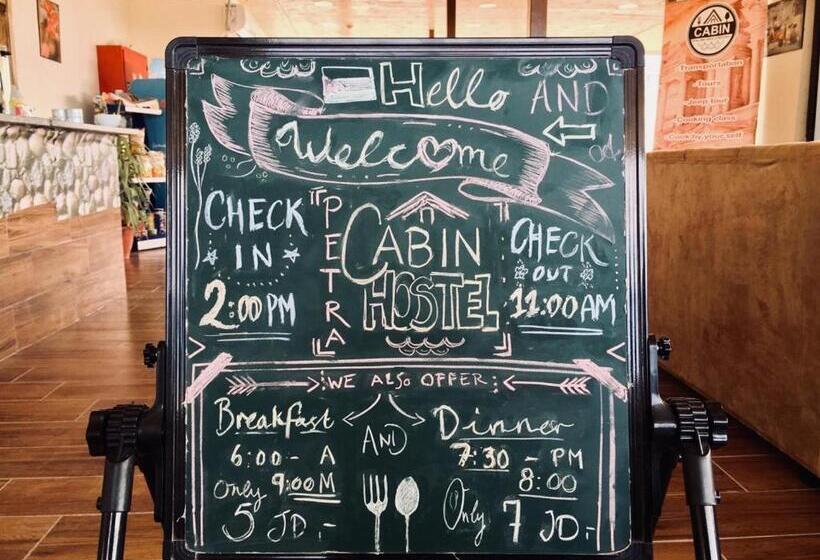 Hello AND
Welcome
CHECK
IN
2:00 PM
PETRA
CABIN
HOSTEL
CHECK
OUT
11:00 AM
WE ALSO OFFER:
Breakfast
6:00 - A
9:00 M
Only
5 JD,-
AND
Dinner
7:30 - PM
8:00
Only
7 JD,-
CABIN
-Transportation
-Tours
-Jeep tour
-Cooking class
-Cook by your self